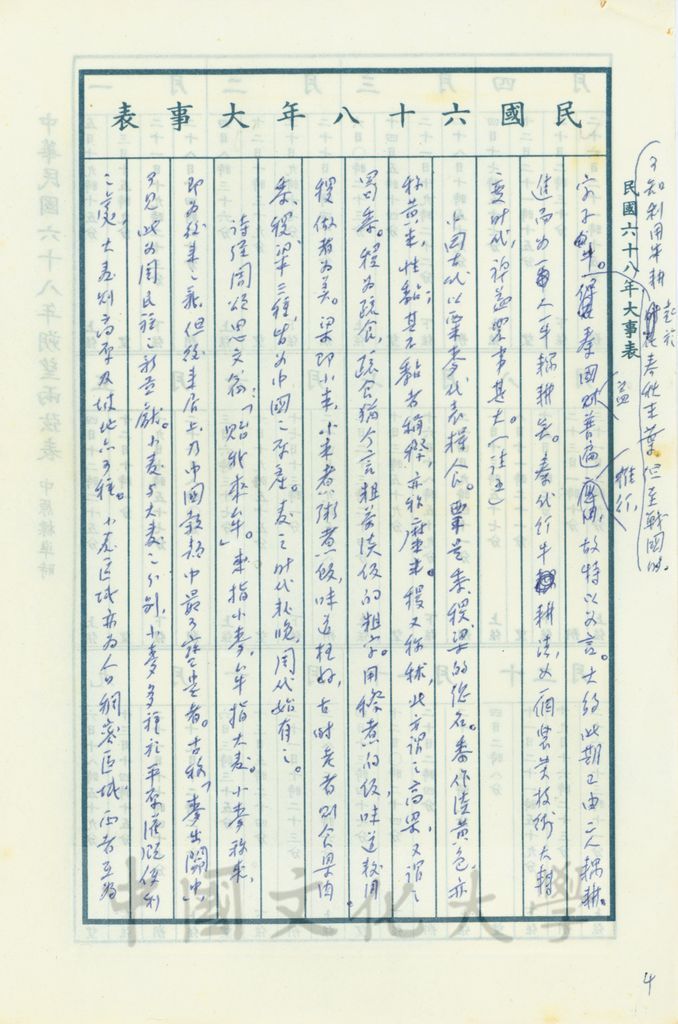 民國六十八年大事表
民國六十八年大事表
不知利用牛耕 起於春秋末葉 但至戰國時
益
推行
字子牛。秦國普遍應用，故特以為言。大約此期已由二人耦耕
進而為一人一牛耦耕矣。秦代行牛耕法，為一個農業技術大轉
變時代，裨益農事甚大（註五）
中國古代以粟麥代表糧食。粟是黍稷粱的總名。黍作淡黃色，亦
稱黃米，性黏，其不黏者稱穄，亦稱糜。稷又稱秫，北方謂之高粱，又謂之
蜀黍。稷為疏食，疏食猶今言粗茶淡飯的粗字。用穄煮的飯，味道較用
稷做者為美。粱即小米，小米煮粥煮飯，味道極好，古時老者則食粱肉。
黍、稷、粱三種，皆為中國之原產。麥之時代較晚，周代始有之。
詩經周頌思文篇：「貽我來牟」。來指小麥，牟指大麥。小麥稱來，
即為後來之來，但後來居上，乃中國穀類中最可寶貴者。古稱「麥出關中」，
可見此為周民族之新貢獻。小麥與大麥之分別，小麥多種於平原灌溉便利
之處，大麥則高原及坡地亦可種。小麥區域亦為人口稠密區域，兩者互為
中國文化大學
4
中華民國六十八年朔望兩弦表 中原標準時